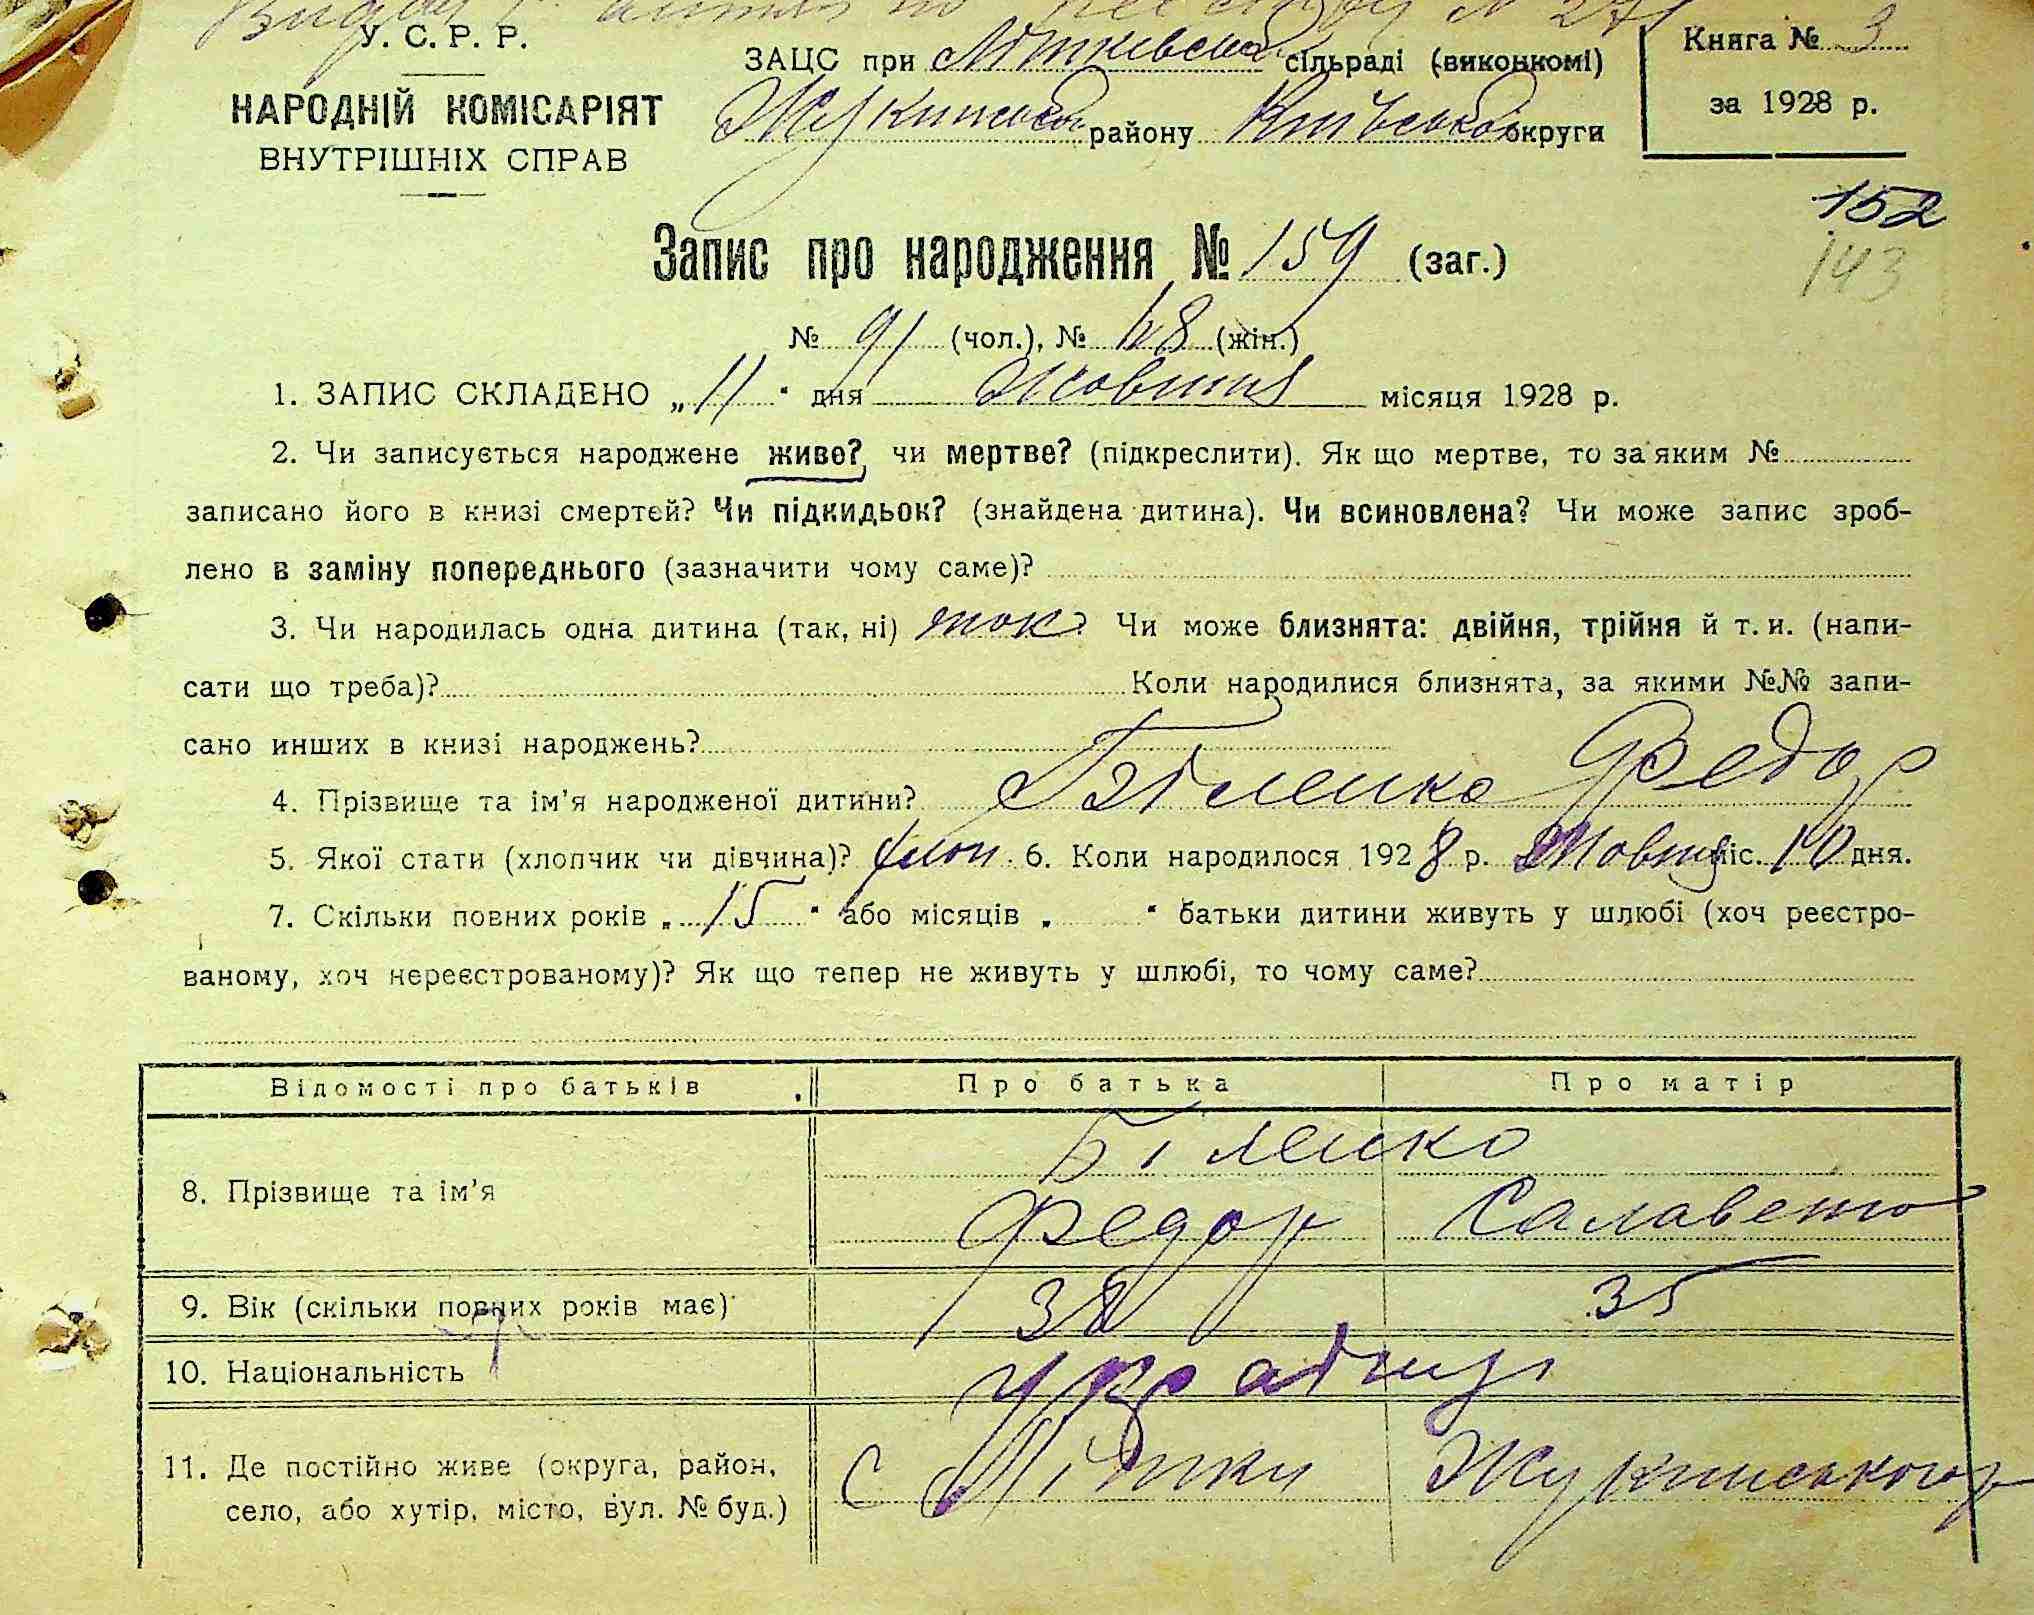 У. С. Р. Р.
НАРОДНІЙ КОМІСАРІЯТ
ВНУТРІШНІХ СПРАВ
ЗАЦС при Літківській сільраді (виконкомі)
Жукинського району Київської округи
Книга № 3
за 1928 р.
152
143
Запис про народження № 159 (заг.)
№ 91 (чол.), № 68 (жін.)
1. ЗАПИС СКЛАДЕНО „11" дня Жовтня місяця 1928 р.
2. Чи записується народжене живе? чи мертве? (підкреслити). Як що мертве, то за яким №
записано його в книзі смертей? Чи підкидьок? (знайдена дитина). Чи всиновлена? Чи може запис зроб-
лено в заміну попереднього (зазначити чому саме)?
3. Чи народилась одна дитина (так, ні) так? Чи може близнята: двійня, трійня й т. и. (напи-
сати що треба)? Коли народилися близнята, за якими №№ запи-
сано инших в книзі народжень?
4. Прізвище та ім'я народженої дитини? Біленко Федор
5. Якої стати (хлопчик чи дівчина)? хлоп. 6. Коли народилося 1928 р. Жовтня міс. 10 дня.
7. Скільки повних років „15" або місяців „ " батьки дитини живуть у шлюбі (хоч реєстро-
ваному, хоч нереєстрованому)? Як що тепер не живуть у шлюбі, то чому саме?
Відомості про батьків Про батька Про матір
8. Прізвище та ім'я
Біленко
Федор Салавета
9. Вік (скільки повних років має) 38 35
10. Національність українці
11. Де постійно живе (округа, район,
село, або хутір, місто, вул. № буд.)
с Літки Жукинського р